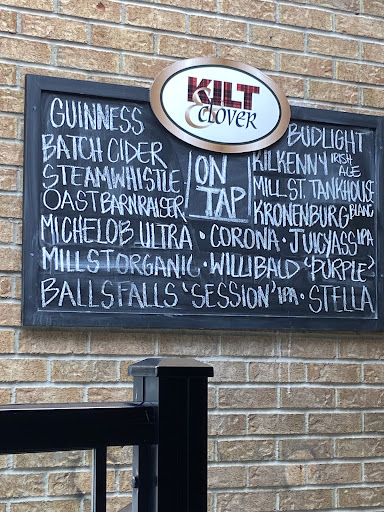 KILT
& CLOVER
GUINNESS
BATCH CIDER
STEAMWHISTLE
OAST BARNRAISER
ON
TAP
BUDLIGHT
KILKENNY IRISH ALE
MILL ST. TANKHOUSE
KRONENBURG BLANC
MICHELOB ULTRA · CORONA · JUICYASS IPA
MILL ST ORGANIC · WILLIBALD 'PURPLE'
BALLS FALLS 'SESSION' IPA · STELLA